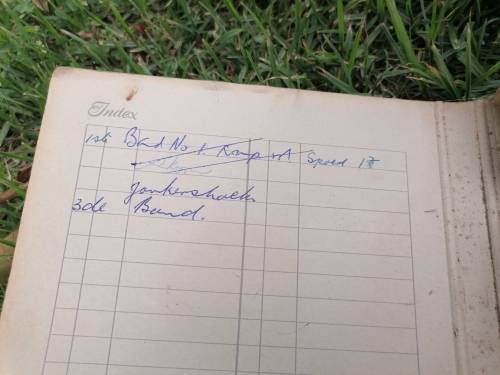 Index
1ste Band No 1. Kamp A Speed 1⅞
Jonkershoek
3de Band.